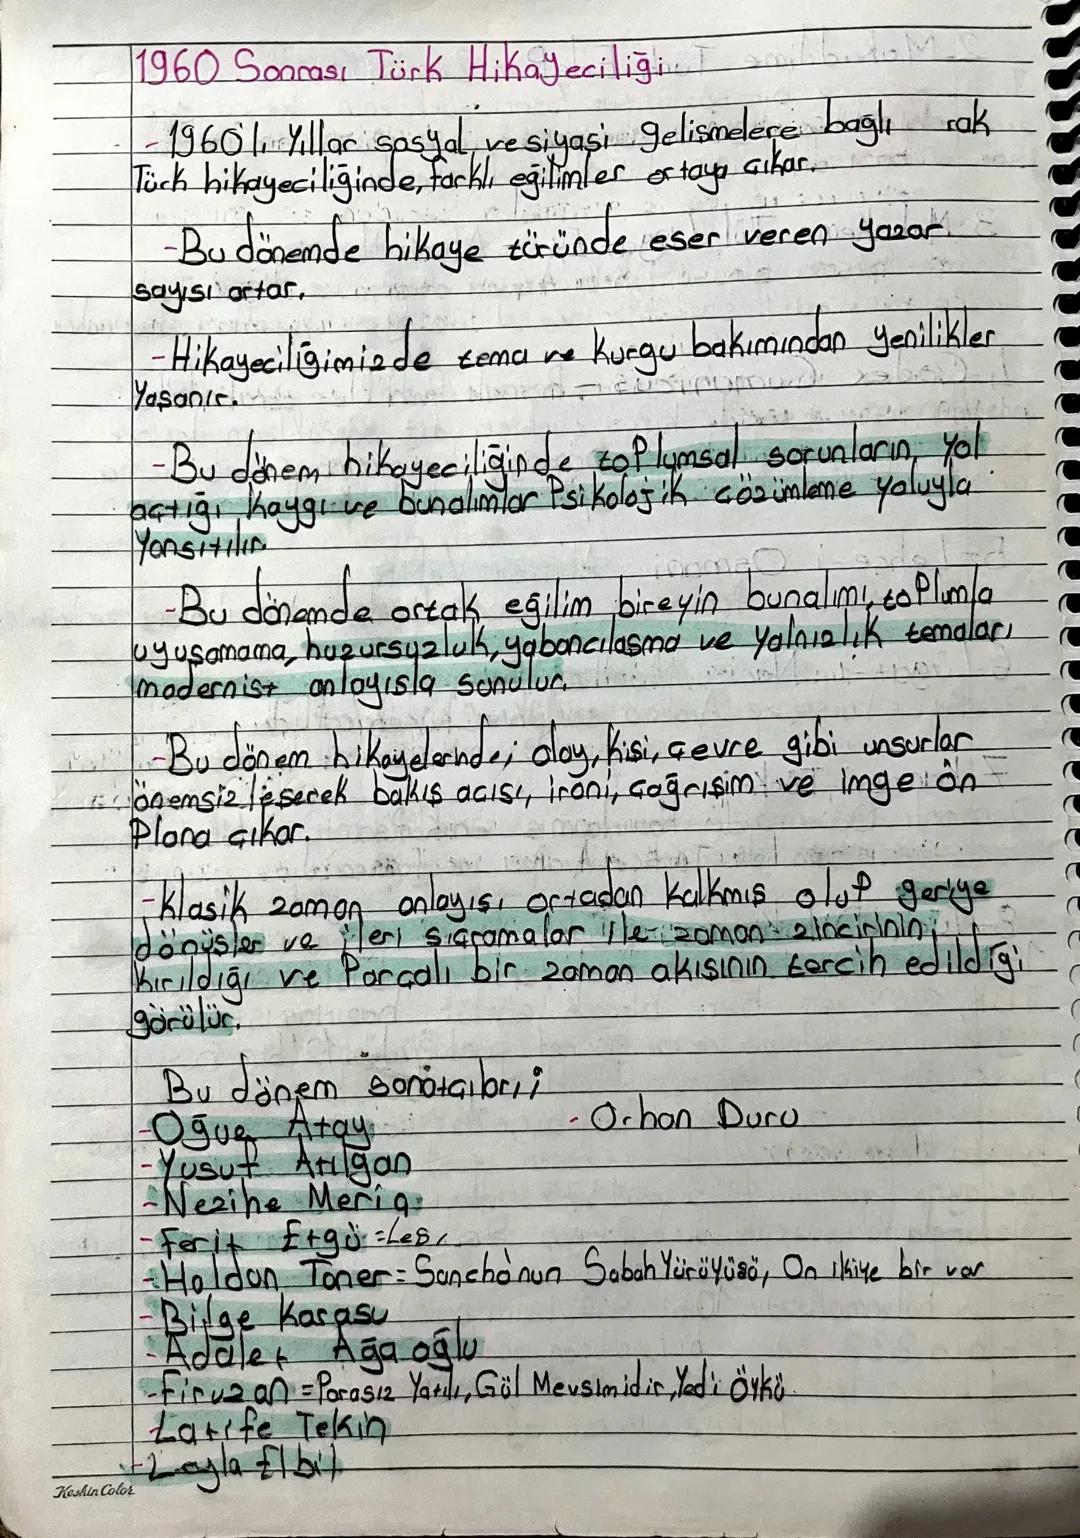 1960 Sonrası Türk Hikayeciliği
- 1960'lı Yıllar sosyal ve siyasi gelişmelere bağlı rak
Türk hikayeciliğinde, farklı eğilimler ortaya çıkar.
- Bu dönemde hikaye türünde eser veren yazar
sayısı artar.
- Hikayeciliğimizde tema ve kurgu bakımından yenilikler
Yaşanır.
- Bu dönem hikayeciliğinde toplumsal sorunların yol
açtığı kaygı ve bunalımlar Psikolojik çözümleme yoluyla
Yansıtılır.
- Bu dönemde ortak eğilim bireyin bunalımı, toplumla
uyuşamama, huzursuzluk, yabancılaşma ve yalnızlık temaları
modernist anlayışla sunulur.
- Bu dönem hikayelerinde; olay, kişi, çevre gibi unsurlar
önemsizleşerek bakış açısı, ironi, çağrışım ve imge ön
Plana çıkar.
- Klasik zaman anlayışı ortadan kalkmış olup geriye
dönüşler ve ileri sıçramalar ile zaman zincirinin
kırıldığı ve Parçalı bir zaman akışının tercih edildiği
görülür.
Bu dönem sanatçıları;
- Oğuz Atay
- Orhan Duru
- Yusuf Atılgan
- Nezihe Meriç
- Ferit Edgü =
- Haldun Taner = Sancho'nun Sabah Yürüyüşü, On ikiye bir var
- Bilge Karasu
- Adalet Ağaoğlu
- Firuzan = Parasız Yatılı, Göl Mevsimidir, Yedi Öykü
- Latife Tekin
- Leyla Elbil
Keskin Color